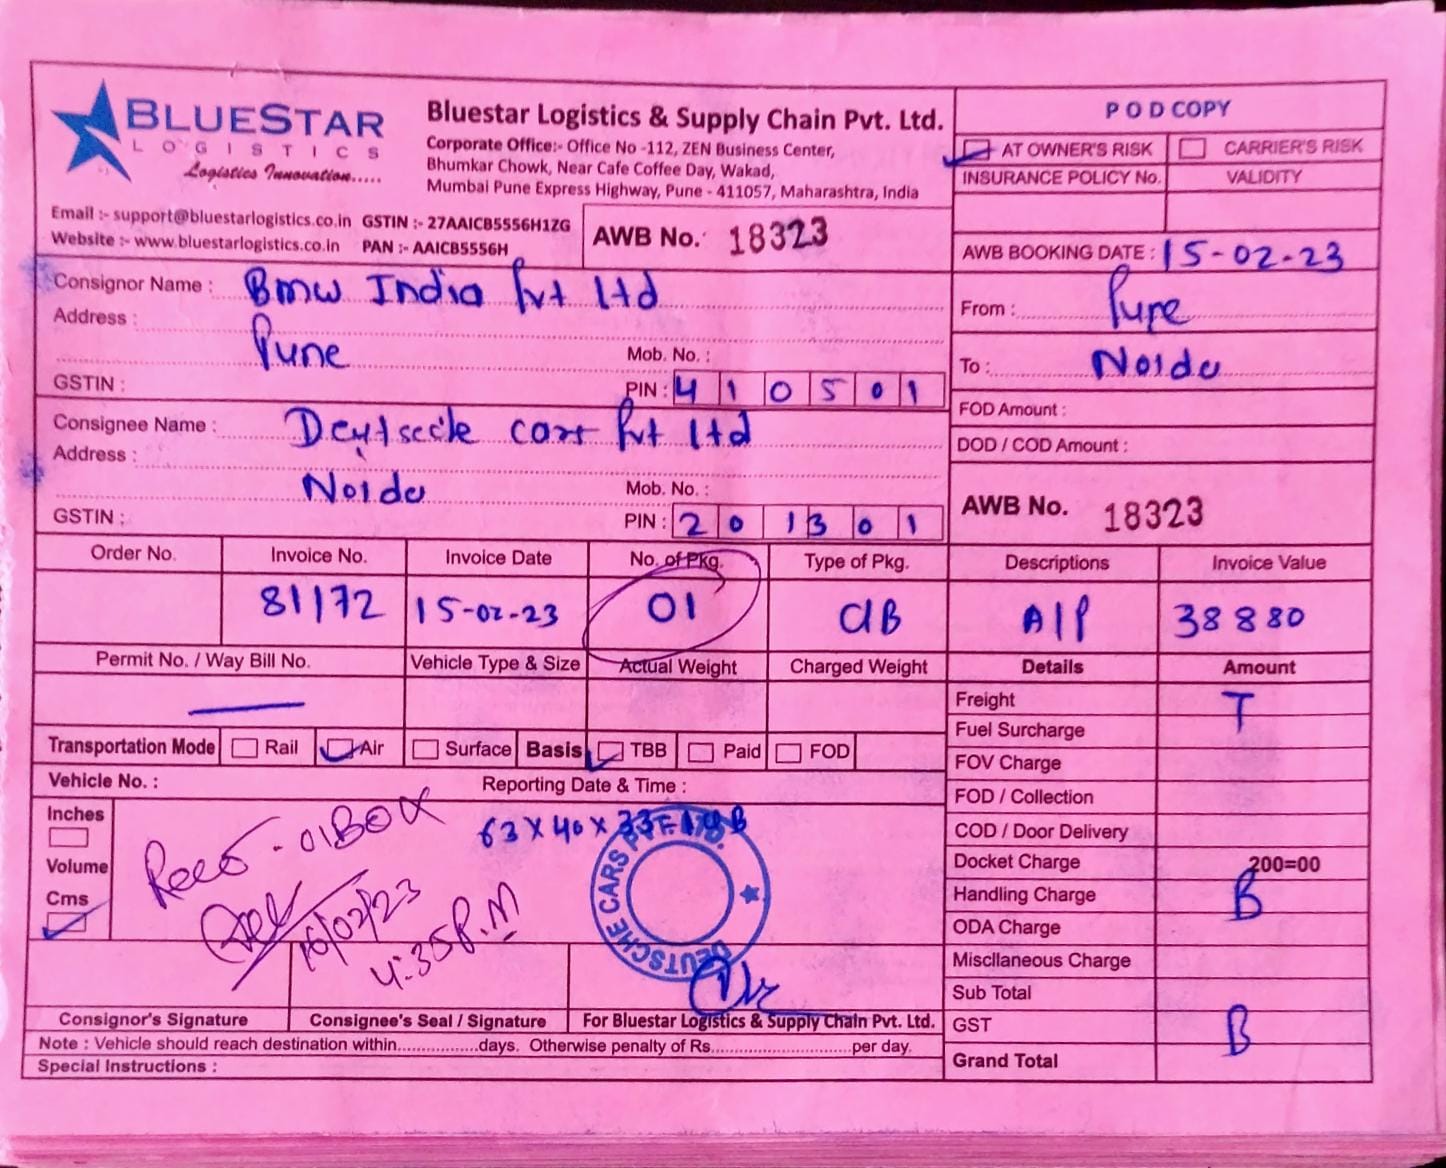 BLUESTAR
LOGISTICS
Logistics Innovation.....
Bluestar Logistics & Supply Chain Pvt. Ltd.
Corporate Office:- Office No -112, ZEN Business Center,
Bhumkar Chowk, Near Cafe Coffee Day, Wakad,
Mumbai Pune Express Highway, Pune - 411057, Maharashtra, India
Email :- support@bluestarlogistics.co.in GSTIN :- 27AAICB5556H1ZG
Website :- www.bluestarlogistics.co.in PAN :- AAICB5556H
AWB No. 18323
POD COPY
AT OWNER'S RISK CARRIER'S RISK
INSURANCE POLICY No. VALIDITY
AWB BOOKING DATE : 15-02-23
From : Pune
To : Noida
FOD Amount :
DOD / COD Amount :
AWB No. 18323
Consignor Name : Bmw India Pvt ltd
Address :
Pune Mob. No. :
GSTIN : PIN : 410501
Consignee Name : car Pvt ltd
Address :
Noida Mob. No. :
GSTIN : PIN : 201301
Order No. Invoice No. Invoice Date No. of Pkg. Type of Pkg. Descriptions Invoice Value
81172 15-02-23 01 C/B A/P 38880
Permit No. / Way Bill No. Vehicle Type & Size Actual Weight Charged Weight Details Amount
Freight T
Fuel Surcharge
Transportation Mode Rail Air Surface Basis TBB Paid FOD
FOV Charge
Vehicle No. : Reporting Date & Time :
FOD / Collection
COD / Door Delivery
Docket Charge 200=00
Handling Charge B
ODA Charge
Miscllaneous Charge
Sub Total
GST B
Grand Total
Inches
Volume
Cms
63 X 40 X 33
01 BOX
16/02/23
4:35 P.M
DEUTSCHE CARS PVT. LTD.
Consignor's Signature Consignee's Seal / Signature For Bluestar Logistics & Supply Chain Pvt. Ltd.
Note : Vehicle should reach destination within.................days. Otherwise penalty of Rs..............................per day.
Special Instructions :